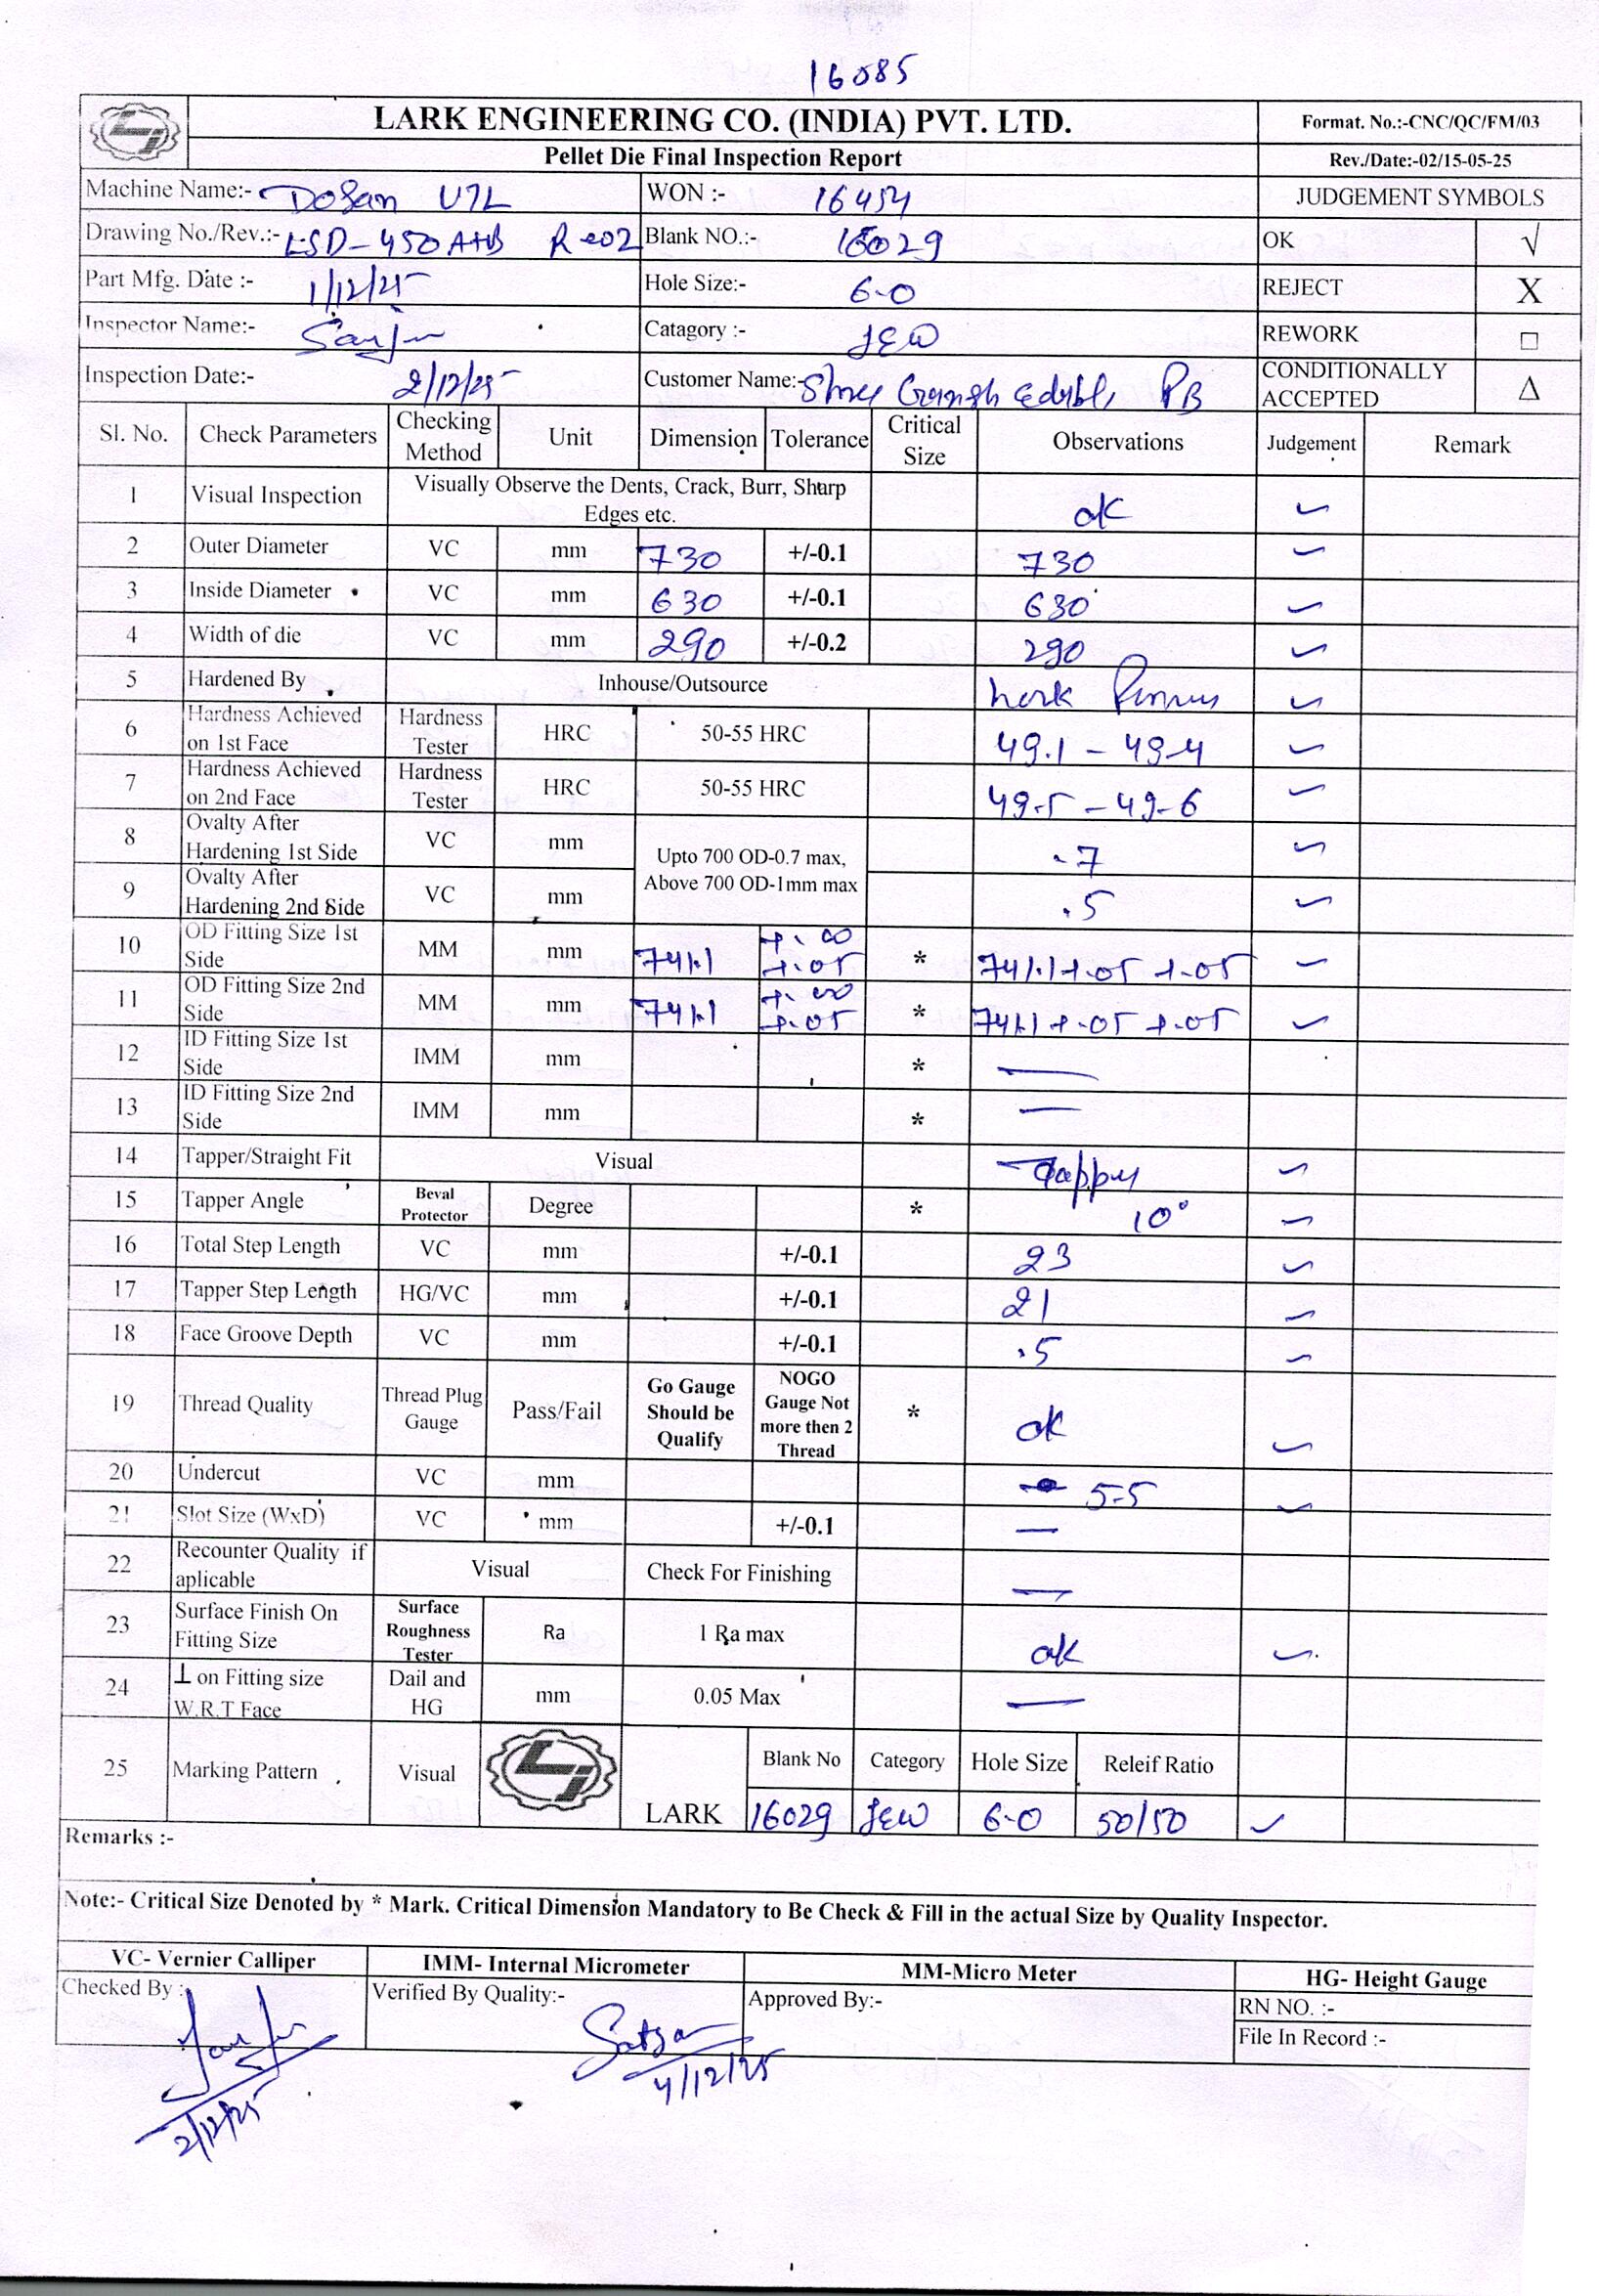 16085
LARK ENGINEERING CO. (INDIA) PVT. LTD.
Format. No.:-CNC/QC/FM/03
Pellet Die Final Inspection Report
Rev./Date:-02/15-05-25
Machine Name:- DoSan
WON :- 16454
JUDGEMENT SYMBOLS
Drawing No./Rev.:- LSD-450 A+B Re02
Blank NO.:- 16029
OK √
Part Mfg. Date :- 1/12/25
Hole Size:- 6.0
REJECT X
Inspector Name:- Sanju
Catagory :- JEW
REWORK □
Inspection Date:- 2/12/25
Customer Name:- Shree Ganesh Edible, PB
CONDITIONALLY ACCEPTED Δ
Sl. No. Check Parameters Checking Method Unit Dimension Tolerance Critical Size Observations Judgement Remark
1 Visual Inspection Visually Observe the Dents, Crack, Burr, Sharp Edges etc. ok ✓
2 Outer Diameter VC mm 730 +/-0.1 730 ✓
3 Inside Diameter VC mm 630 +/-0.1 630 ✓
4 Width of die VC mm 290 +/-0.2 290 ✓
5 Hardened By Inhouse/Outsource Lark ✓
6 Hardness Achieved on 1st Face Hardness Tester HRC 50-55 HRC 49.1 - 49.4 ✓
7 Hardness Achieved on 2nd Face Hardness Tester HRC 50-55 HRC 49.5 - 49.6 ✓
8 Ovalty After Hardening 1st Side VC mm Upto 700 OD-0.7 max, Above 700 OD-1mm max .7 ✓
9 Ovalty After Hardening 2nd Side VC mm .5 ✓
10 OD Fitting Size 1st Side MM mm 741.1 +.00 +.05 * 741.1 +.05 +.05 ✓
11 OD Fitting Size 2nd Side MM mm 741.1 +.00 +.05 * 741.1 +.05 +.05 ✓
12 ID Fitting Size 1st Side IMM mm * —
13 ID Fitting Size 2nd Side IMM mm * —
14 Tapper/Straight Fit Visual Tapper ✓
15 Tapper Angle Beval Protector Degree * 10° ✓
16 Total Step Length VC mm +/-0.1 23 ✓
17 Tapper Step Length HG/VC mm +/-0.1 21 ✓
18 Face Groove Depth VC mm +/-0.1 .5 ✓
19 Thread Quality Thread Plug Gauge Pass/Fail Go Gauge Should be Qualify NOGO Gauge Not more then 2 Thread * ok ✓
20 Undercut VC mm 5.5 ✓
21 Slot Size (WxD) VC mm +/-0.1 —
22 Recounter Quality if aplicable Visual Check For Finishing —
23 Surface Finish On Fitting Size Surface Roughness Tester Ra 1 Ra max ok ✓
24 ⊥ on Fitting size W.R.T Face Dail and HG mm 0.05 Max —
25 Marking Pattern Visual LARK Blank No Category Hole Size Releif Ratio
16029 JEW 6.0 50/50 ✓
Remarks :-
Note:- Critical Size Denoted by * Mark. Critical Dimension Mandatory to Be Check & Fill in the actual Size by Quality Inspector.
VC- Vernier Calliper IMM- Internal Micrometer MM-Micro Meter HG- Height Gauge
Checked By :- Sanju 2/12/25
Verified By Quality:- 4/12/25
Approved By:-
RN NO. :-
File In Record :-